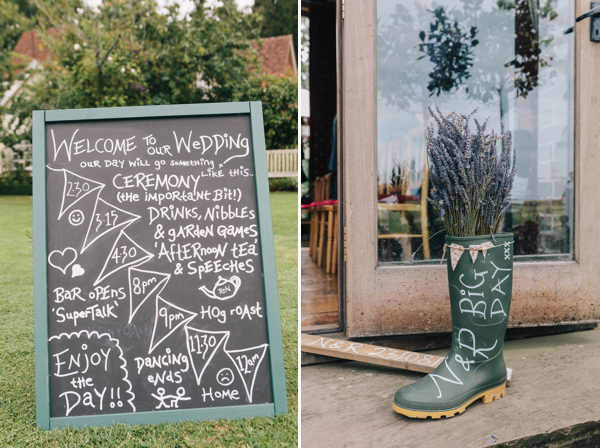 WELCOME TO OUR WeDDING
OUR DAY WILL GO SOMETHING LIKE THIS..
2.30
CEREMONY
(the IMPORtANT Bit!)
3.15
DRINKS, NIBBLES
& gARDeN GAMES
4.30
'AFteRNOON teA'
& SPeeCHeS
8pm
BAR OPeNS
'SUPeRTALK'
9pm
HOg ROAST
11.30
DANCING
eNDS
12am
HOMe
ENJOY
the
DAY!!
N&R BIG
DAY xxx
N&R 23/08/